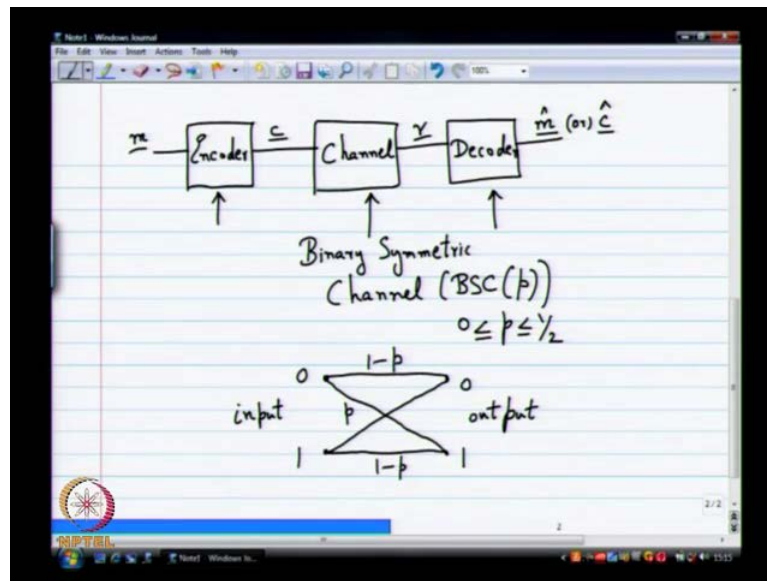 Note1 - Windows Journal
File Edit View Insert Actions Tools Help
100%
m Encoder c Channel r Decoder m̂ (or) ĉ
Binary Symmetric
Channel (BSC(p))
0 ≤ p ≤ 1/2
1-p
0 0
input p output
1 1
1-p
2/2
2
NPTEL
Note1 - Windows Jo...
15:15